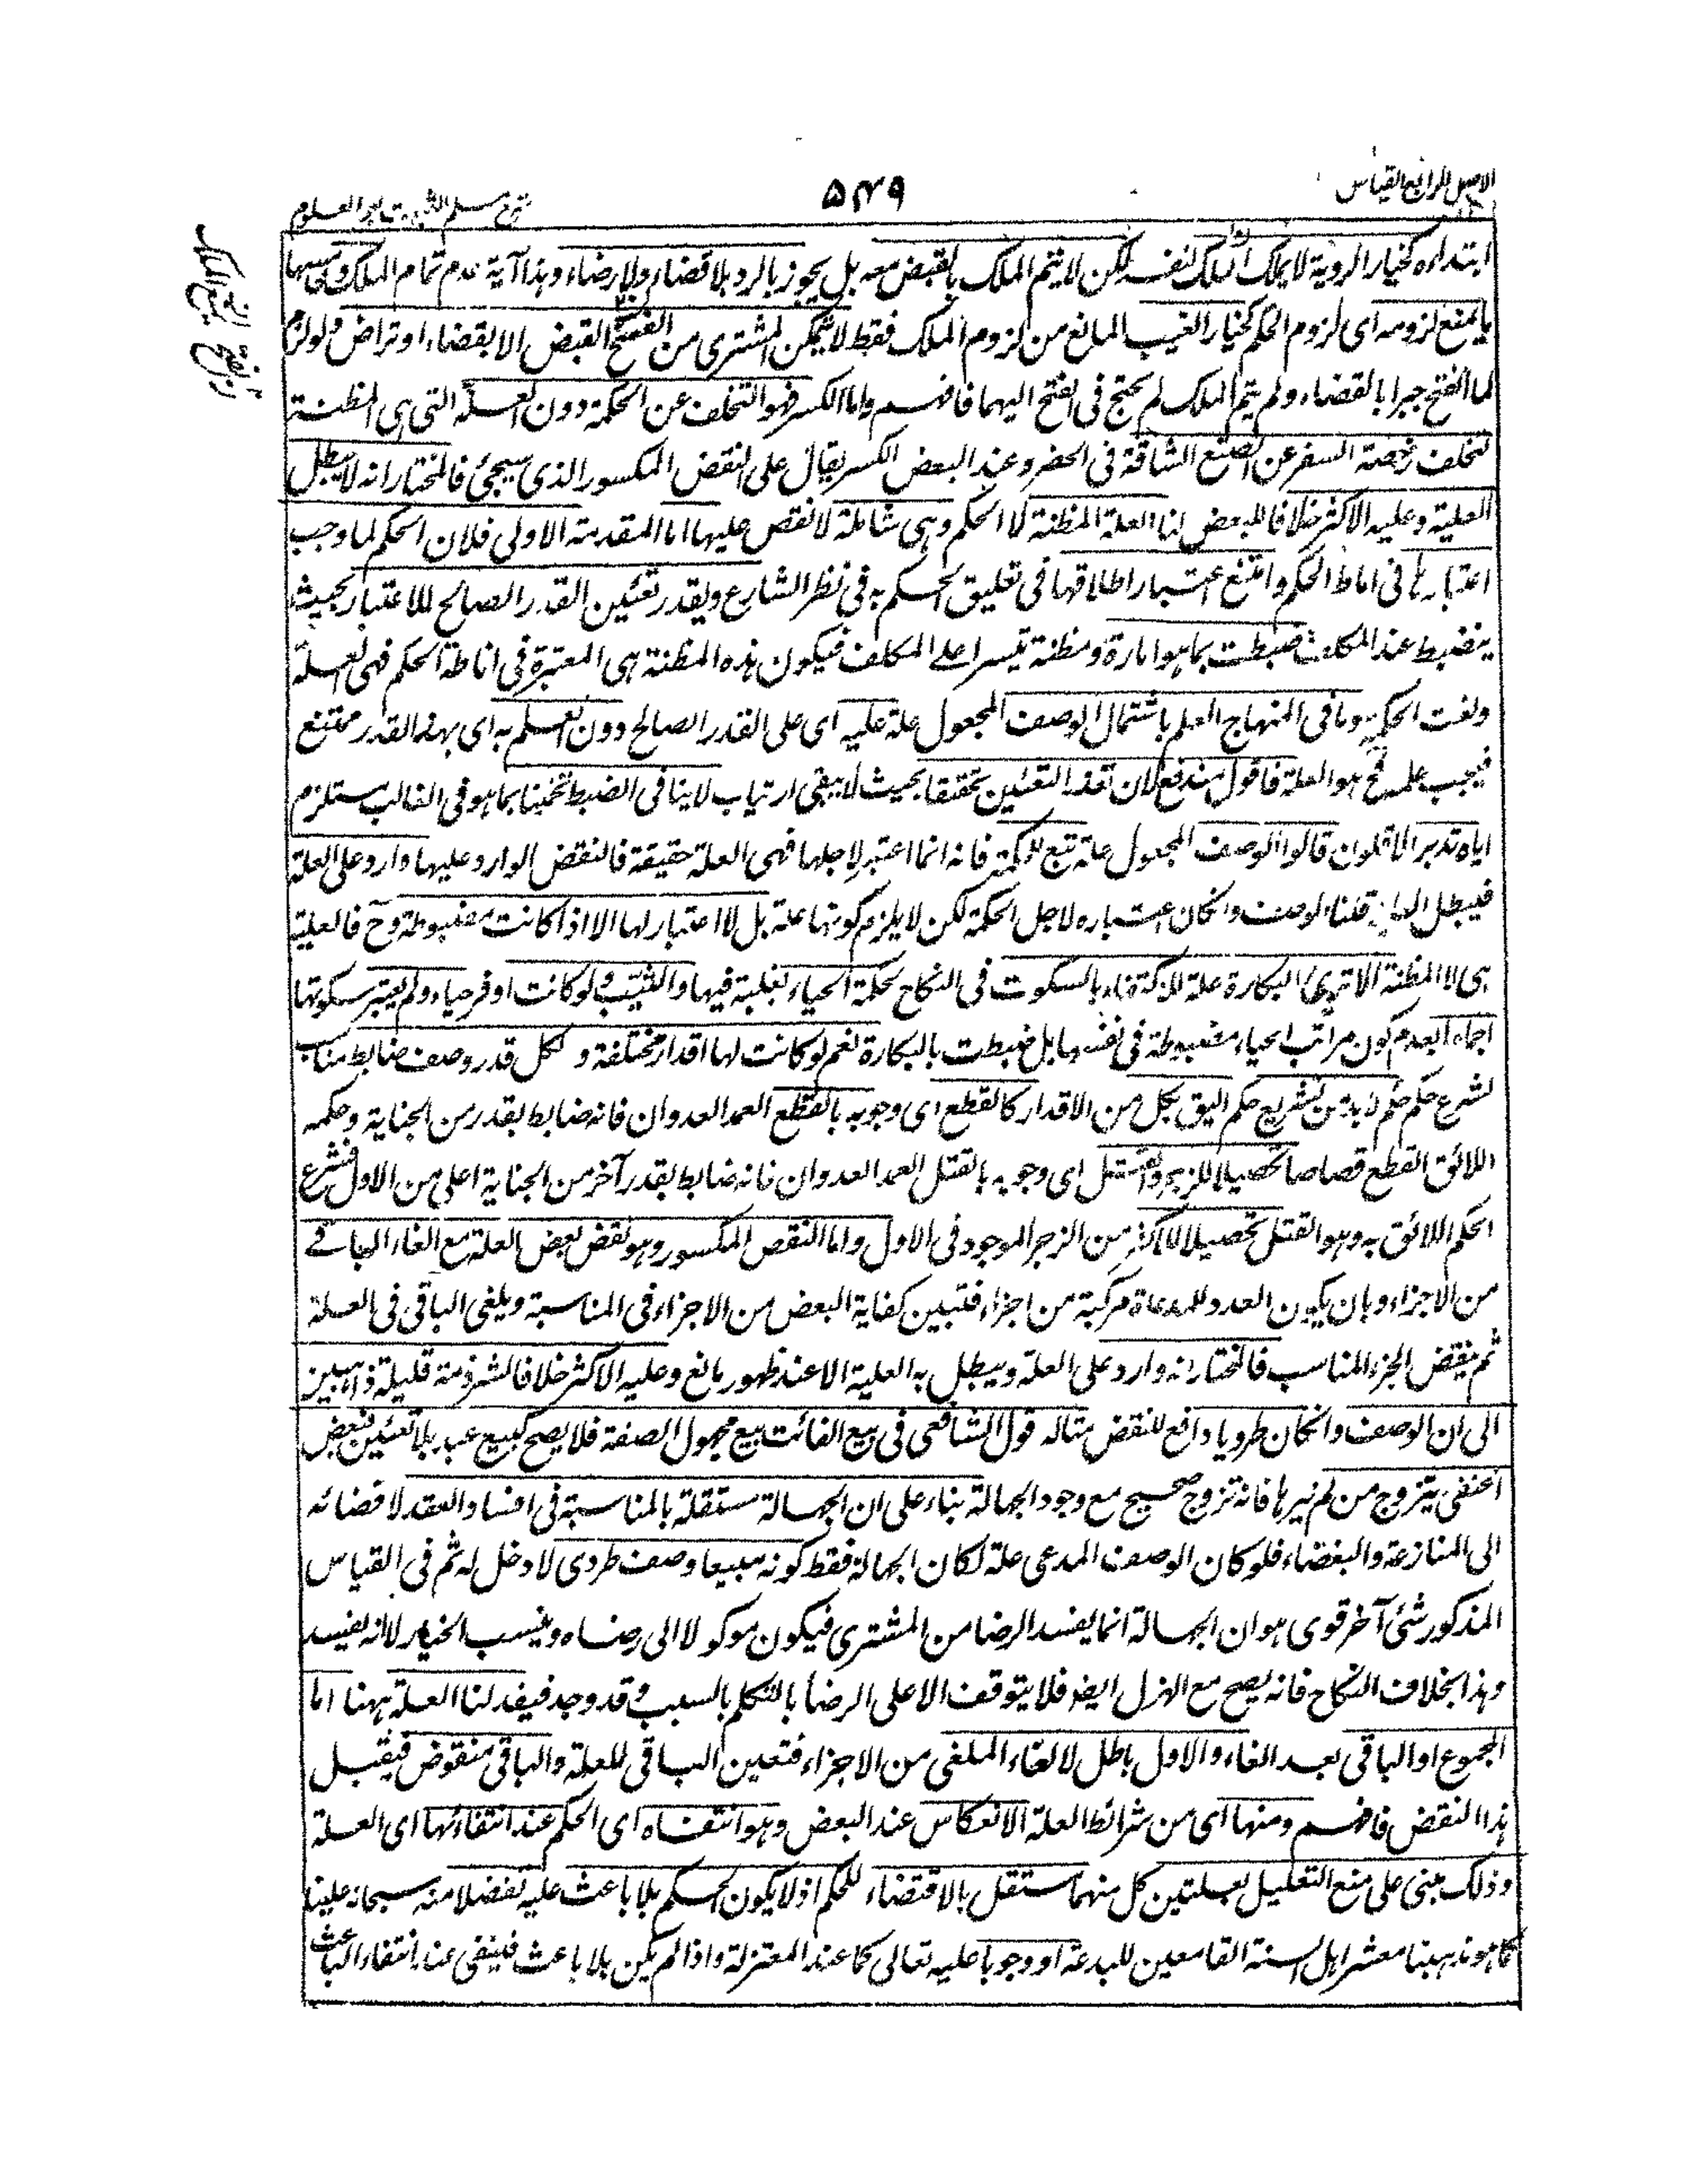 الاصل الرابع القياس
۵۴۹
شرح مسلم الثبوت لبحر العلوم
ابتداءه كخيار الروية لا يملك الملك نفسه لكن لا يتم الملك بالقبض معه بل يجوز بالرد بلا قضاء ولا رضاء وهذا آية عدم تمام الملك
ما يمنع لزومه اى لزوم الحكم كخيار العيب المانع من لزوم الملك فقط لا يتمكن المشترى من الفسخ القبض الا بقضاء او تراض ولو لزم
لما انفسخ جبرا بالقضاء ولم يتم الملك لم يحتج فى الفسخ اليهما فافهم واما الكسر فهو التخلف عن الحكمة دون العلة التى هى المظنة
لتخلف رخصة السفر عن الصنع الشاقة فى الحضر وعند البعض الكسر يقال على النقض المكسور الذى سيجئ فالمختار انه لا يبطل
العلية وعليه الاكثر خلافا للبعض لنا العلة المظنة لا الحكم وهى شاملة لا نقص عليها اما المقدمة الاولى فلان الحكم لما وجب
اعتبارها فى اناط الحكم وامتنع اعتبار اطلاقها فى تعليق الحكم به فى نظر الشارع وبقدر تعيين القدر الصالح للاعتبار بحيث
ينضبط عند المكلف ضبطت بما هو امارة ومظنة تيسرا على المكلف فيكون هذه المظنة هى المعتبرة فى اناطة الحكم فهى العلة
ولغت الحكمة وما فى المنهاج العلم باشتمال الوصف المجعول علة عليه اى على القدر الصالح دون العلم به اى بهذا القدر ممتنع
فيجب علمه فح هو العلة فاقول مندفع لان تعذر التعيين تحققا بحيث لا يبقى ارتياب لا ينافى الضبط تخمينا بما هو فى الغالب مستلزم
اياه تدبر القائلون قالوا الوصف المجعول علة تبع للحكمة فانه انما اعتبر لاجلها فهى العلة حقيقة فالنقض الوارد عليها وارد على العلة
فيبطل العلية قلنا الوصف وانكان اعتباره لاجل الحكمة لكن لا يلزم كونها علة بل لا اعتبار لها الا اذا كانت مضبوطة وح فالعلية
هى لا المظنة الا ترى البكارة علة للاكتفاء بالسكوت فى النكاح لحكمة الحياء لغلبته فيها والثيب ولو كانت اوفر حياء ولم يعتبر سكوتها
اجماعا لعدم كون مراتب الحياء مضبوطة فى نفسها بل ضبطت بالبكارة نعم لو كانت لها اقدار مختلفة ولكل قدر وصف ضابط مناسب
لشرع حكم حكم لا بد من تشريع حكم اليق بكل من الاقدار كالقطع اى وجوبه بالقطع العمد العدوان فانه ضابط بقدر من الجناية وحكمه
اللائق القطع قصاصا تحصيلا للزجر والقتل اى وجوبه بالقتل العمد العدوان فانه ضابط بقدر آخر من الجناية اعلى من الاول فشرع
الحكم اللائق به وهو القتل تحصيلا لاكثر من الزجر الموجود فى الاول واما النقص المكسور وهو نقض بعض العلة مع الغاء الباقى
من الاجزاء وبان يكون العدو للمدعاة مركبة من اجزاء فتبين كفاية البعض من الاجزاء فى المناسبة ويلغى الباقى فى العلة
ثم ينقض الجزء المناسب فالمختار انه وارد على العلة ويبطل به العلية الا عند ظهور مانع وعليه الاكثر خلافا لشرذمة قليلة ذاهبين
الى ان الوصف وانكان طرديا دافع للنقض مثاله قول الشافعى فى بيع الغائب بيع مجهول الصفة فلا يصح كبيع عبد بلا تعيين فنقض
الحنفى بتزوج من لم يرها فانه تزوج صحيح مع وجود الجهالة بناء على ان الجهالة مستقلة بالمناسبة فى افساد العقد لافضائه
الى المنازعة والبغضاء فلو كان الوصف المدعى علة لكان الجهالة فقط كونه مبيعا وصف طردى لا دخل له ثم فى القياس
المذكور شئ آخر قوى هو ان الجهالة انما يفسد الرضا من المشترى فيكون موكولا الى رضاه ويثبت الخيار لا انه يفسد
وهذا بخلاف النكاح فانه يصح مع الهزل ايضا فلا يتوقف الا على الرضا بالتكلم بالسبب وقد وجد فيفد لنا العلة ههنا اما
المجموع او الباقى بعد الغاء والاول باطل لالغاء الملغى من الاجزاء فتعين الباقى للعلة والباقى منقوض فيقبل
هذا النقض فافهم ومنها اى من شرائط العلة الانعكاس عند البعض وهو انتفاءه اى الحكم عند انتفائها اى العلة
وذلك مبنى على منع التعليل بعلتين كل منهما مستقل بالاقتضاء للحكم اذ لا يكون الحكم بلا باعث عليه تفضلا منه سبحانه علينا
كما هو مذهبنا معشر اهل السنة القامعين للبدعة او وجوبا عليه تعالى كما عند المعتزلة واذا لم يكن بلا باعث فينفى عند انتفاء الباعث